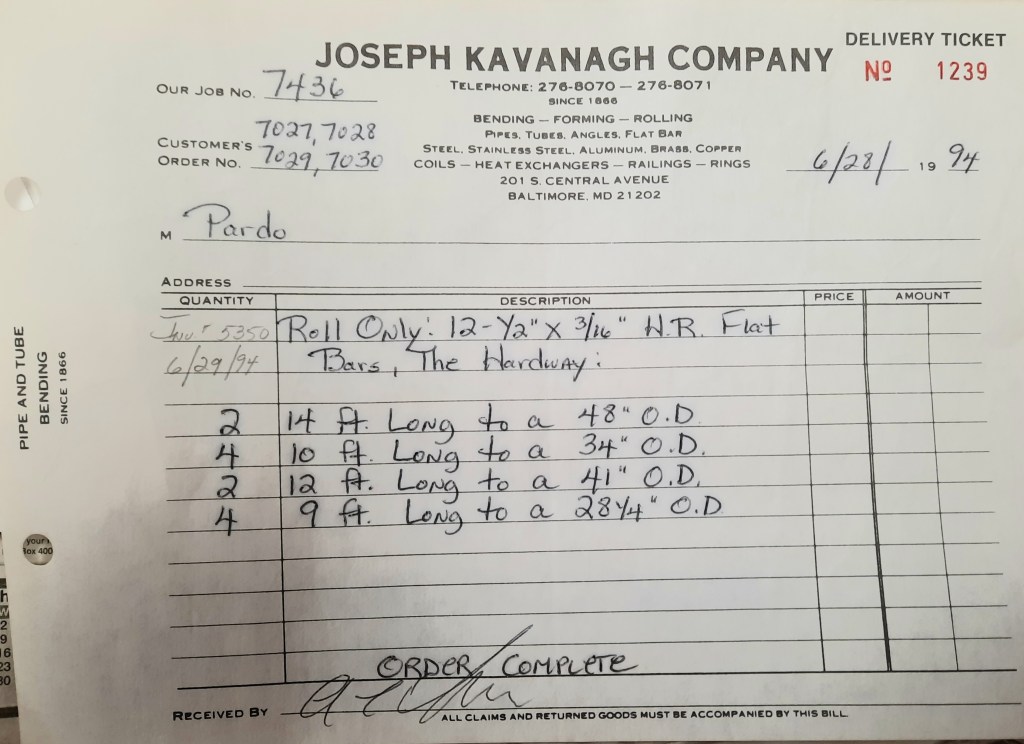 DELIVERY TICKET
JOSEPH KAVANAGH COMPANY
Nº 1239
OUR JOB NO. 7436
TELEPHONE: 276-8070 — 276-8071
SINCE 1866
BENDING — FORMING — ROLLING
PIPES, TUBES, ANGLES, FLAT BAR
STEEL, STAINLESS STEEL, ALUMINUM, BRASS, COPPER
COILS — HEAT EXCHANGERS — RAILINGS — RINGS
201 S. CENTRAL AVENUE
BALTIMORE, MD 21202
CUSTOMER'S 7027, 7028
ORDER NO. 7029, 7030
6/28/ 19 94
M Pardo
ADDRESS
QUANTITY DESCRIPTION PRICE AMOUNT
5350 Roll Only: 12-1/2" X 3/16" H.R. Flat
6/29/94 Bars, The Hardway:
2 14 ft. Long to a 48" O.D
4 10 ft. Long to a 34" O.D.
2 12 ft. Long to a 41" O.D.
4 9 ft. Long to a 28 1/4" O.D
ORDER COMPLETE
RECEIVED BY
ALL CLAIMS AND RETURNED GOODS MUST BE ACCOMPANIED BY THIS BILL
PIPE AND TUBE
BENDING
SINCE 1866
your
Box 400
h
W
2
9
16
23
30